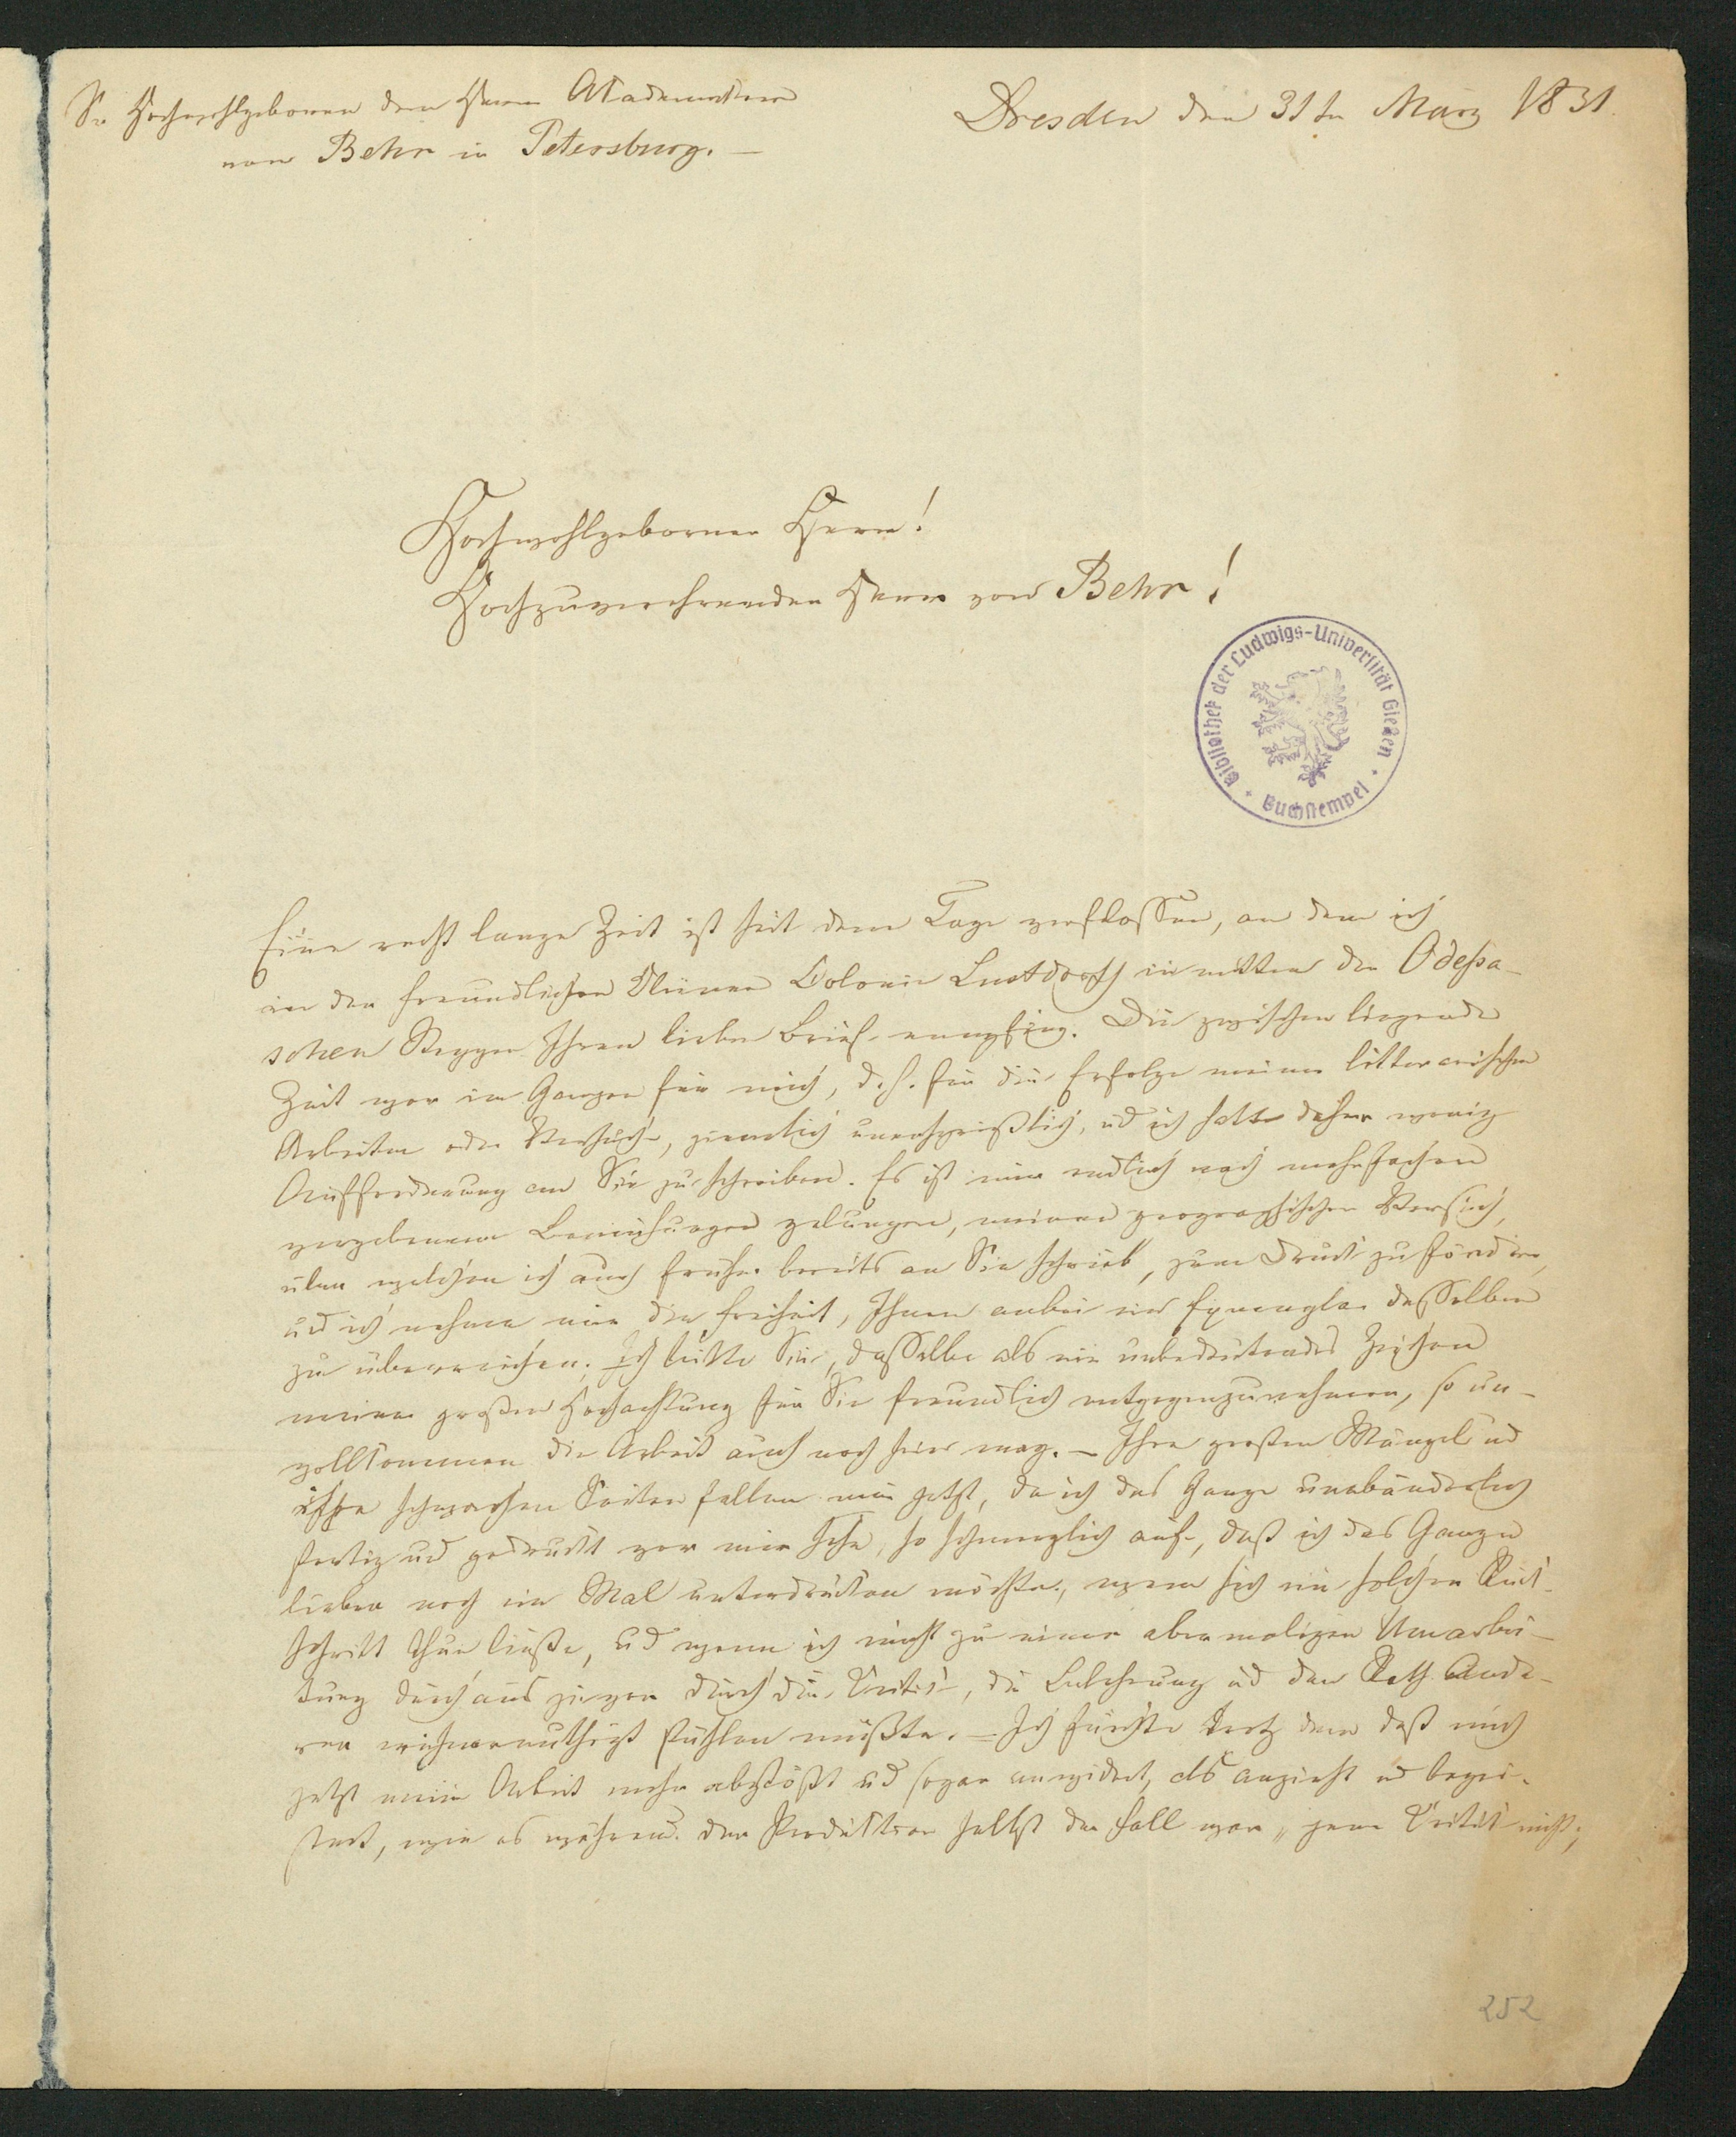 Sr Hochwohlgeboren dem Herrn Akademiker
von Behr in Petersburg. —
Dresden den 31ten März 1831.
Hochwohlgeborner Herr!
Hochzuverehrender Herr von Behr!
Bibliothek der Ludwigs-Universität Gießen
Buchstempel
Eine recht lange Zeit ist seit dem Tage verflossen, an dem ich
in der freundlichen kleinen Colonie Lustdorf in mitten der Odessa-
schen Steppe Ihren lieben Brief empfing. Die zwischen liegende
Zeit war im Ganzen für mich, d. h. für die Erfolge meiner litterarischen
Arbeiten oder Versuche, ziemlich unersprießlich, und ich hatte daher wenig
Aufforderung an Sie zu schreiben. Es ist mir endlich nach mehrfachen
vergebenen Bemühungen gelungen, meinen geographischen Versuch,
über welchen ich auch früher bereits an Sie schrieb, zum Druck zu fördern,
und ich nehme mir die Freiheit, Ihnen anbei ein Exemplar desselben
zu überreichen. Ich bitte Sie, dasselbe als ein unbedeutendes Zeichen
meiner großen Hochachtung für Sie freundlich entgegenzunehmen, so un-
vollkommen die Arbeit auch noch sein mag. — Ihre großen Mängel und
ihre schwachen Seiten fallen mir jetzt, da ich das Ganze unabänderlich
fertig und gedruckt vor mir sehe, so schmerzlich auf, daß ich das Ganze
lieber noch ein Mal unterdrücken möchte, wenn sich ein solcher Rück-
schritt thun ließe, und wenn ich nicht zu einer abermaligen Umarbei-
tung durchaus gegen durch die Kritik, die Belehrung und den Rath Ande-
rer mich ermuthigt fühlen müßte. — Ich fürchte trotz dem daß mich
jetzt meine Arbeit mehr abstößt und sogar anwidert, als anzieht und begei-
stert, wie es während der Produktion selbst der Fall war, jene Kritik nicht,
252